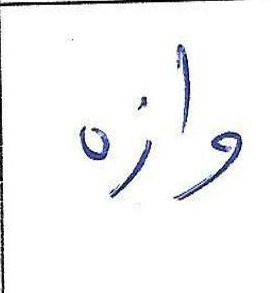 وازه